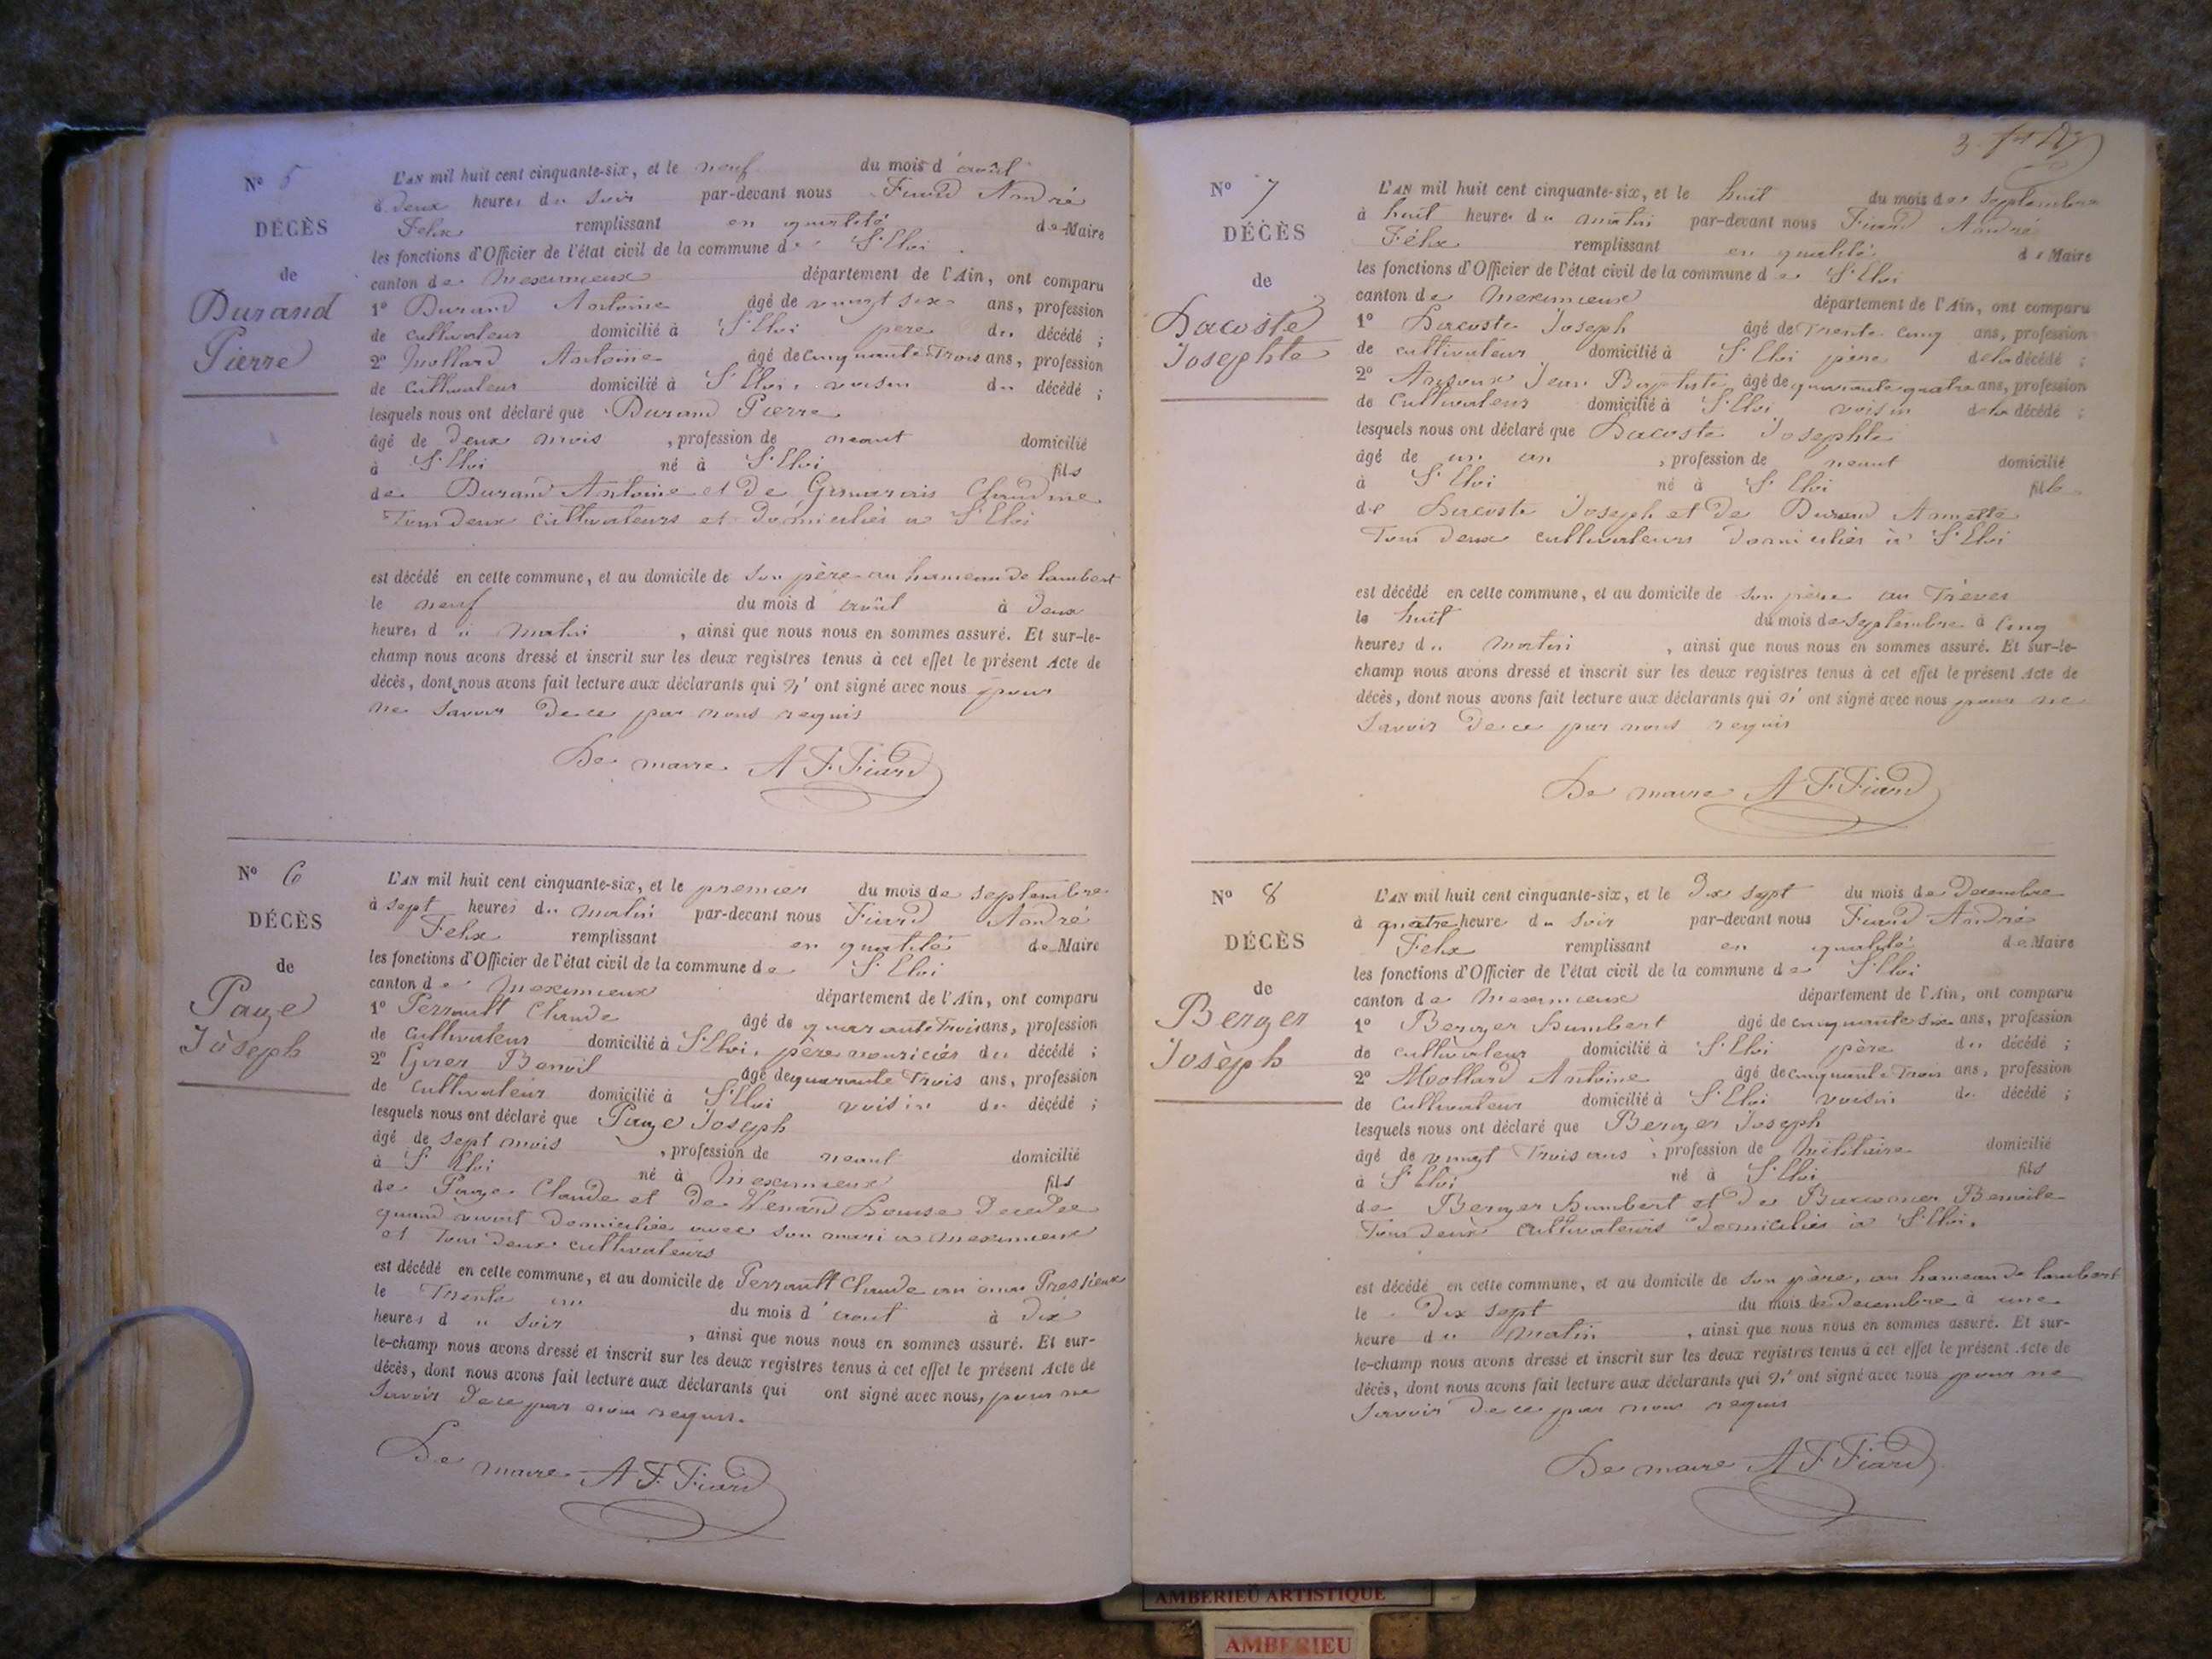 N° 5
DÉCÈS
de
Durand
Pierre
L'AN mil huit cent cinquante-six, et le neuf du mois d'août
à deux heures du soir par-devant nous Fiard André
Felix remplissant en qualité de Maire
les fonctions d'Officier de l'état civil de la commune de St Eloi
canton de Meximieux département de l'Ain, ont comparu
1° Durand Antoine âgé de vingt six ans, profession
de cultivateur domicilié à St Eloi père du décédé ;
2° Mollard Antoine âgé de cinquante trois ans, profession
de cultivateur domicilié à St Eloi, voisin du décédé ;
lesquels nous ont déclaré que Durand Pierre
âgé de deux mois , profession de neant domicilié
à St Eloi né à St Eloi fils
de Durand Antoine et de Claudine
Tous deux cultivateurs et domiciliés à St Eloi
est décédé en cette commune, et au domicile de son père au hameau de lambert
le neuf du mois d'août à deux
heures du matin , ainsi que nous nous en sommes assuré. Et sur-le-
champ nous avons dressé et inscrit sur les deux registres tenus à cet effet le présent Acte de
décès, dont nous avons fait lecture aux déclarants qui n'ont signé avec nous pour
ne savoir de ce par nous requis
Le maire A F Fiard
N° 6
DÉCÈS
de
Page
Joseph
L'AN mil huit cent cinquante-six, et le premier du mois de septembre
à sept heures du matin par-devant nous Fiard André
Felix remplissant en qualité de Maire
les fonctions d'Officier de l'état civil de la commune de St Eloi
canton de Meximieux département de l'Ain, ont comparu
1° Perrault Claude âgé de quarante trois ans, profession
de cultivateur domicilié à St Eloi, père nouricier du décédé ;
2° Benoit âgé de quarante trois ans, profession
de cultivateur domicilié à St Eloi voisin du décédé ;
lesquels nous ont déclaré que Page Joseph
âgé de sept mois , profession de neant domicilié
à St Eloi né à Meximieux fils
de Page Claude et de Venard Louise décédée
quand vivait domiciliée avec son mari à meximieux
et tous deux cultivateurs
est décédé en cette commune, et au domicile de Perrault Claude au
le Trente un du mois d'août à dix
heures du soir , ainsi que nous nous en sommes assuré. Et sur-
le-champ nous avons dressé et inscrit sur les deux registres tenus à cet effet le présent Acte de
décès, dont nous avons fait lecture aux déclarants qui ont signé avec nous, pour ne
savoir de ce par nous requis.
Le maire A F Fiard
3
N° 7
DÉCÈS
de
Lacoste
Josephte
L'AN mil huit cent cinquante-six, et le huit du mois de septembre
à huit heures du matin par-devant nous Fiard André
Félix remplissant en qualité de Maire
les fonctions d'Officier de l'état civil de la commune de St Eloi
canton de Meximieux département de l'Ain, ont comparu
1° Lacoste Joseph âgé de Trente cinq ans, profession
de cultivateur domicilié à St Eloi père de la décédé ;
2° Jean Baptiste âgé de quarante quatre ans, profession
de cultivateur domicilié à St Eloi voisin de la décédé ;
lesquels nous ont déclaré que Lacoste Josephte
âgé de un an , profession de neant domicilié
à St Eloi né à St Eloi fille
de Lacoste Joseph et de Durand Annette
Tous deux cultivateurs domiciliés à St Eloi
est décédé en cette commune, et au domicile de son père au Trèves
le huit du mois de septembre à cinq
heures du matin , ainsi que nous nous en sommes assuré. Et sur-le-
champ nous avons dressé et inscrit sur les deux registres tenus à cet effet le présent Acte de
décès, dont nous avons fait lecture aux déclarants qui n'ont signé avec nous pour ne
savoir de ce par nous requis
Le maire A F Fiard
N° 8
DÉCÈS
de
Berger
Joseph
L'AN mil huit cent cinquante-six, et le dix sept du mois de Decembre
à quatre heure du soir par-devant nous Fiard André
Felix remplissant en qualité de Maire
les fonctions d'Officier de l'état civil de la commune de St Eloi
canton de Meximieux département de l'Ain, ont comparu
1° Berger humbert âgé de cinquante six ans, profession
de cultivateur domicilié à St Eloi père du décédé ;
2° Mollard Antoine âgé de cinquante trois ans, profession
de cultivateur domicilié à St Eloi voisin du décédé ;
lesquels nous ont déclaré que Berger Joseph
âgé de vingt Trois ans , profession de Militaire domicilié
à St Eloi né à St Eloi fils
de Berger humbert et de Benoite
Tous deux cultivateurs domiciliés à St Eloi.
est décédé en cette commune, et au domicile de son père, au hameau de lambert
le Dix sept du mois de Decembre à une
heure du matin , ainsi que nous nous en sommes assuré. Et sur-
le-champ nous avons dressé et inscrit sur les deux registres tenus à cet effet le présent Acte de
décès, dont nous avons fait lecture aux déclarants qui n'ont signé avec nous pour ne
savoir de ce par nous requis
Le maire A F Fiard
AMBERIEU ARTISTIQUE
AMBERIEU